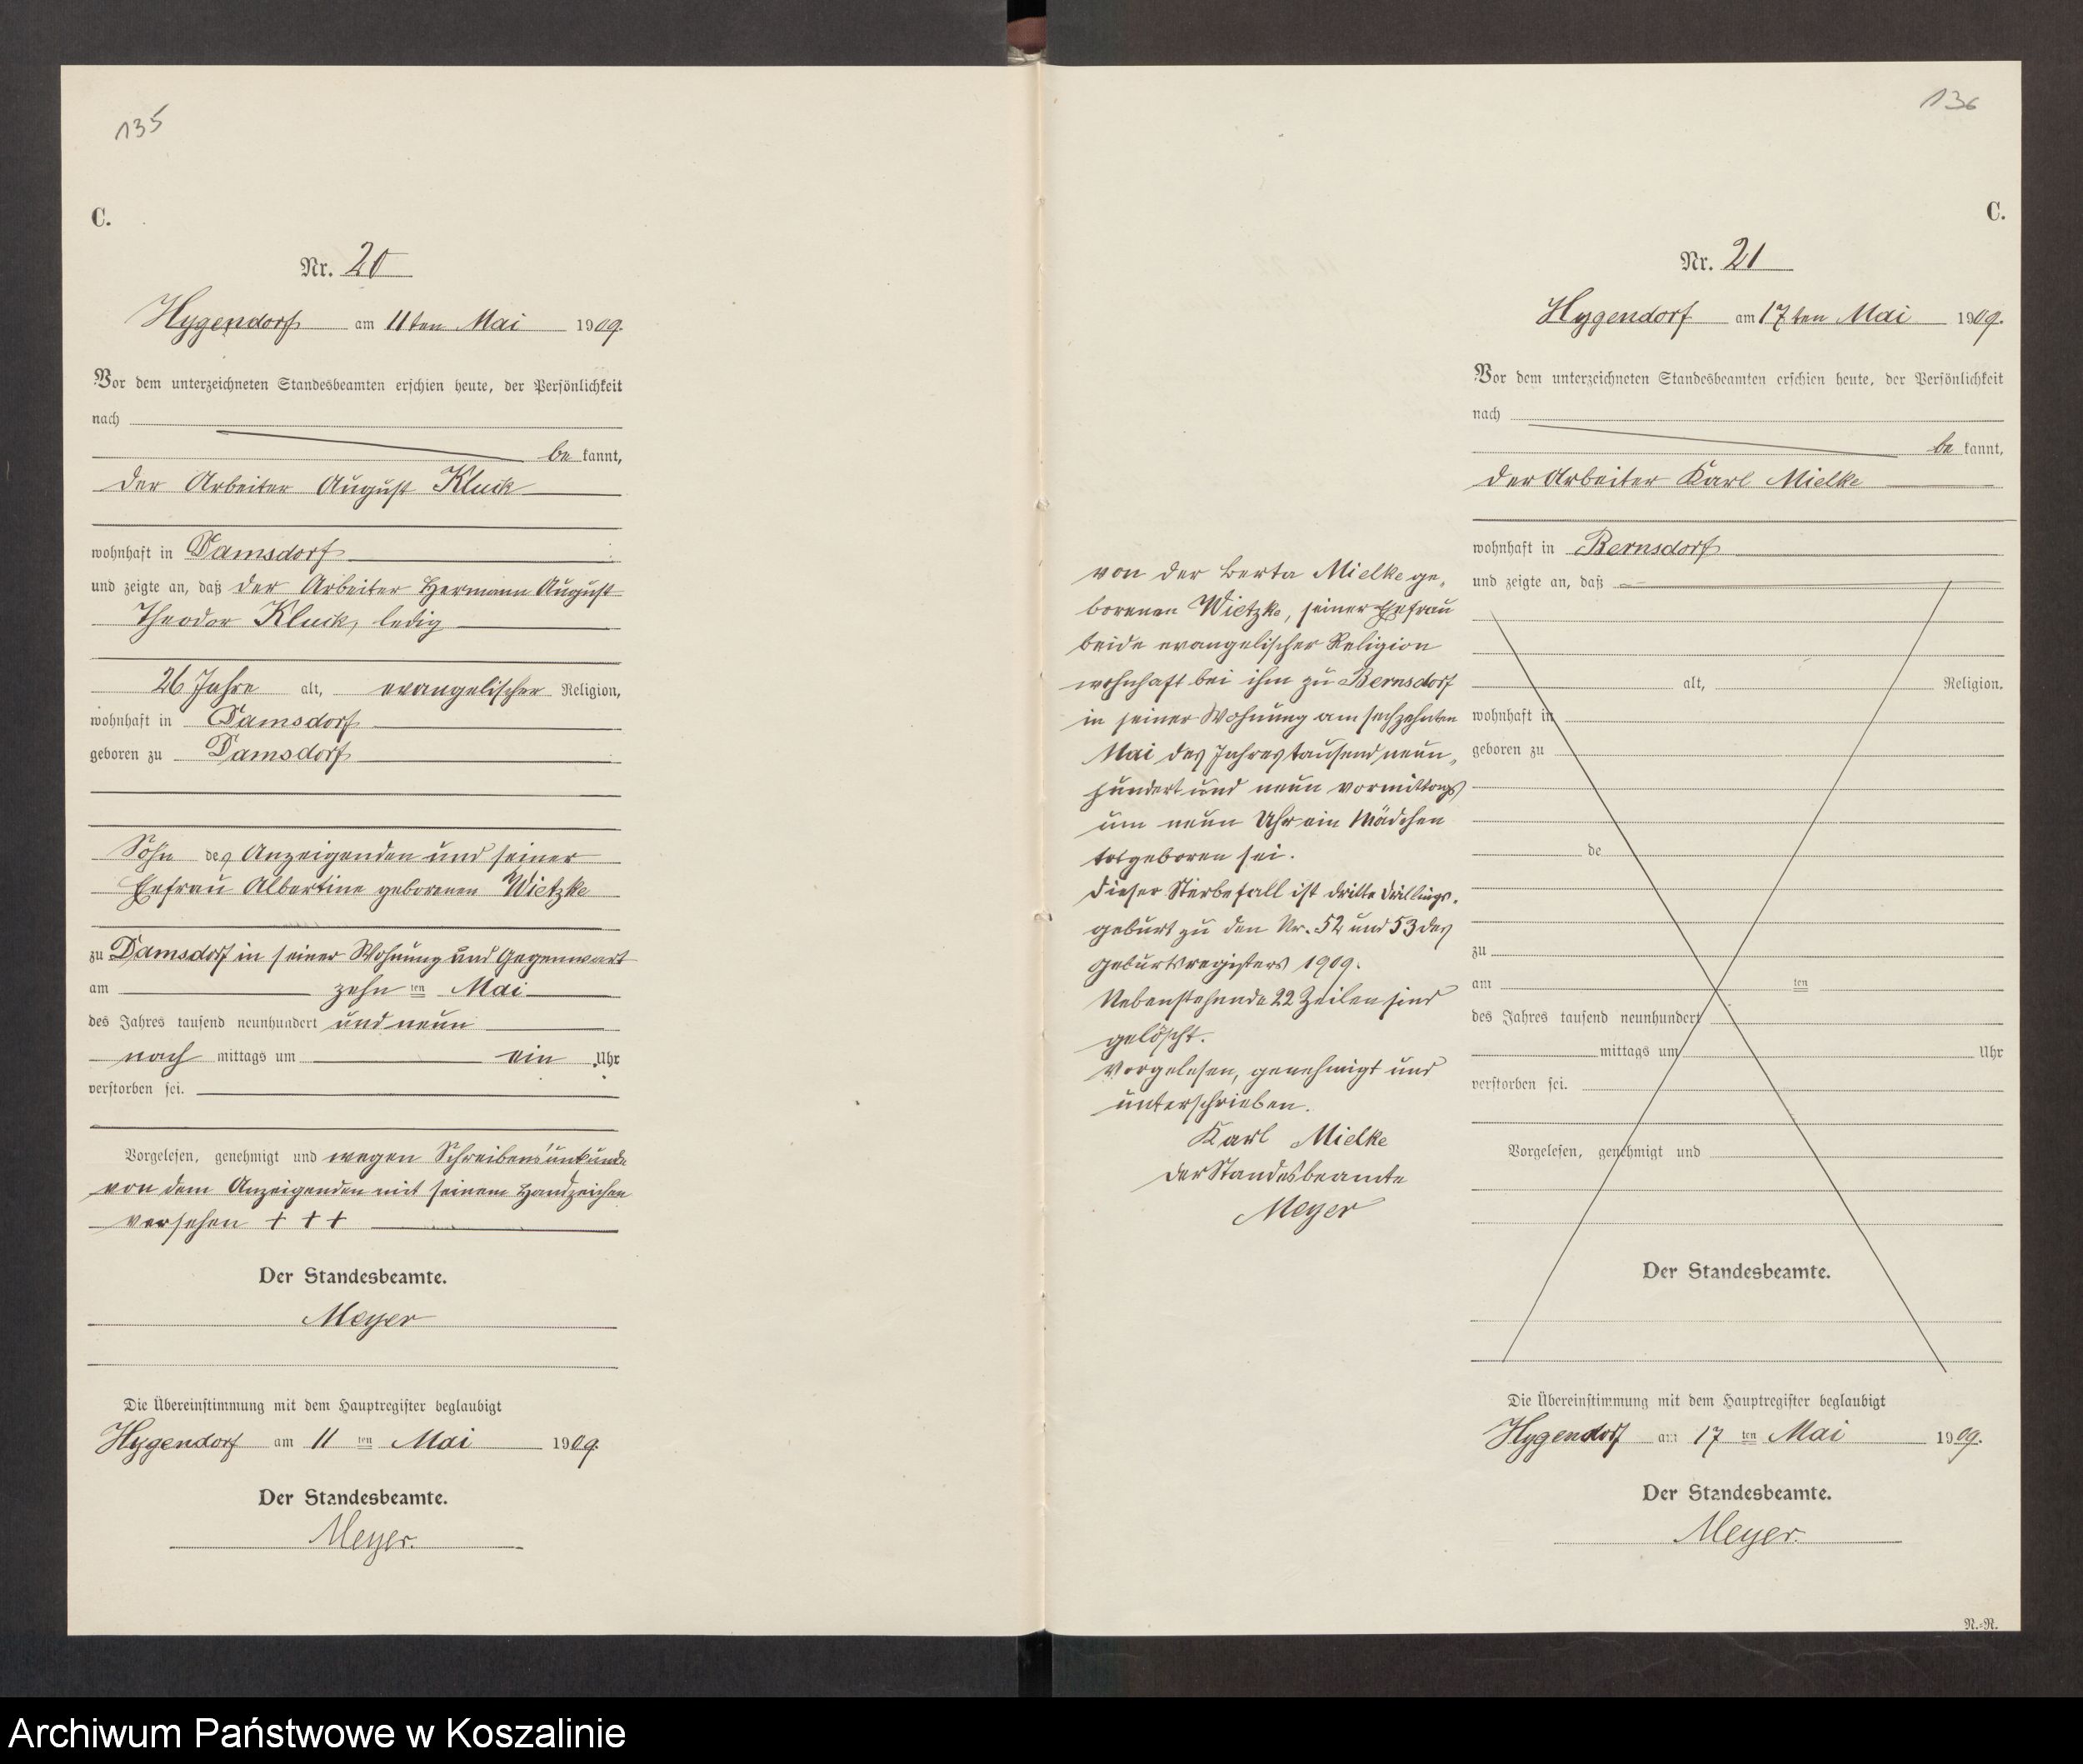 135
C.
Nr. 20
Hygendorf am 11ten Mai 1909.
Vor dem unterzeichneten Standesbeamten erschien heute, der Persönlichkeit
nach
be kannt,
der Arbeiter August Kluck
wohnhaft in Damsdorf
und zeigte an, daß der Arbeiter Hermann August
Theodor Kluck, ledig
26 Jahre alt, evangelischer Religion,
wohnhaft in Damsdorf
geboren zu Damsdorf
Sohn des Anzeigenden und seiner
Ehefrau Albertine geborenen Wietzke
zu Damsdorf in seiner Wohnung und Gegenwart
am zehn ten Mai
des Jahres tausend neunhundert und neun
nach mittags um ein Uhr
verstorben sei.
Vorgelesen, genehmigt und wegen Schreibensunkunde
von dem Anzeigenden mit seinem Handzeichen
versehen + + +
Der Standesbeamte.
Meyer
Die Übereinstimmung mit dem Hauptregister beglaubigt
Hygendorf am 11 ten Mai 1909.
Der Standesbeamte.
Meyer.
136
C.
Nr. 21
Hygendorf am 17ten Mai 1909.
Vor dem unterzeichneten Standesbeamten erschien heute, der Persönlichkeit
nach
be kannt,
der Arbeiter Karl Mielke
wohnhaft in Bernsdorf
und zeigte an, daß
von der Berta Mielke ge-
borenen Wietzke, seiner Ehefrau
beide evangelischer Religion
wohnhaft bei ihm zu Bernsdorf
in seiner Wohnung am sechzehnten
Mai des Jahres tausend neun-
hundert und neun vormittags
um neun Uhr ein Mädchen
totgeboren sei.
Dieser Sterbefall ist dritte Drillings-
geburt zu den Nr. 52 und 53 des
Geburtsregisters 1909.
Nebenstehende 22 Zeilen sind
gelöscht.
Vorgelesen, genehmigt und
unterschrieben.
Karl Mielke
der Standesbeamte
Meyer
alt, Religion.
wohnhaft in
geboren zu
de
zu
am ten
des Jahres tausend neunhundert
mittags um Uhr
verstorben sei.
Vorgelesen, genehmigt und
Der Standesbeamte.
Die Übereinstimmung mit dem Hauptregister beglaubigt
Hygendorf am 17 ten Mai 1909.
Der Standesbeamte.
Meyer.
N.-R.
Archiwum Państwowe w Koszalinie